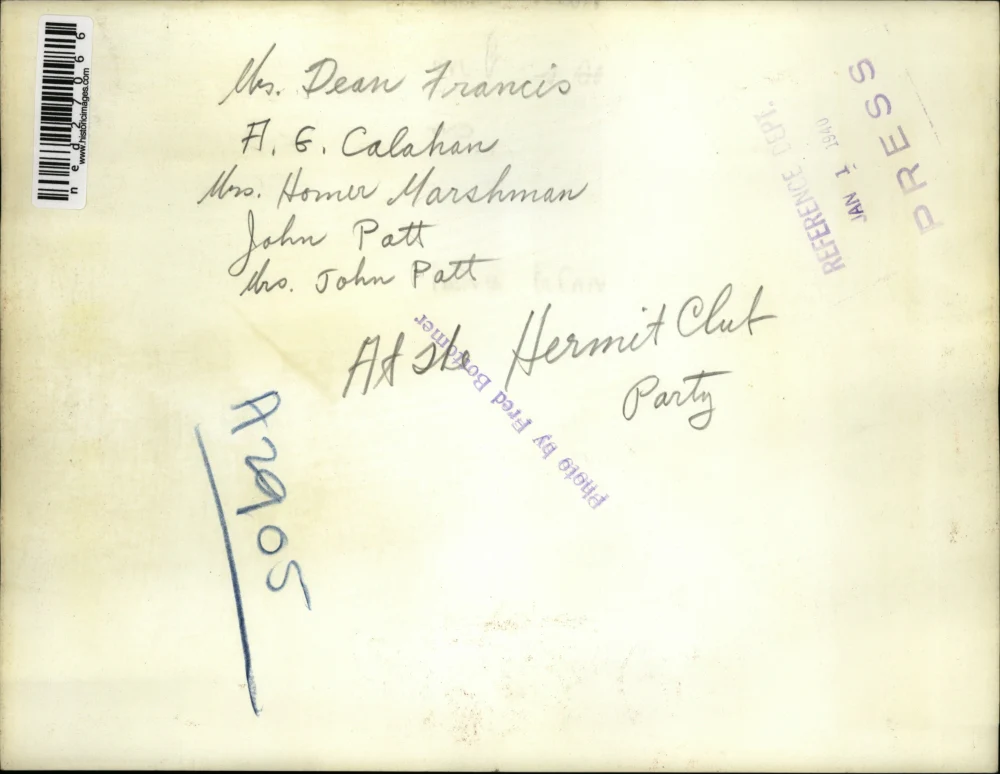 Mrs. Dean Francis
A. G. Calahan
Mrs. Homer Marshman
John Patt
Mrs. John Patt
At the Hermit Club
Party
Photo by Fred Bottomer
A2905
PRESS
JAN 1 1940
REFERENCE DEPT.
www.historicimages.com